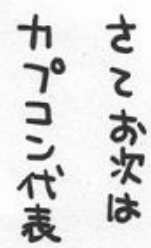 さてお次は
カプコン代表